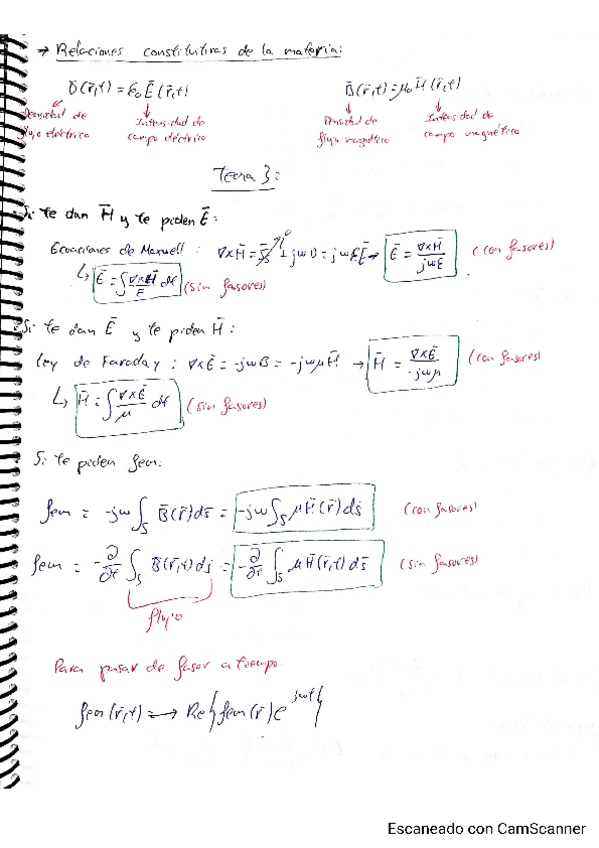 → Relaciones constitutivas de la materia:
D̄(r̄,t) = ε₀ Ē(r̄,t) B̄(r̄,t) = μ₀ H̄(r̄,t)
Densidad de flujo eléctrico Intensidad de campo eléctrico Densidad de flujo magnético Intensidad de campo magnético
Tema 3:
Si te dan H̄ y te piden Ē:
Ecuaciones de Maxwell: ∇×H̄ = J̄ + jωD = jωεĒ → Ē = ∇×H̄ / jωε (con fasores)
↳ Ē = ∫ ∇×H̄ / ε dt (sin fasores)
Si te dan Ē y te piden H̄:
Ley de Faraday: ∇×Ē = -jωB = -jωμH̄ → H̄ = ∇×Ē / -jωμ (con fasores)
↳ H̄ = ∫ ∇×Ē / μ dt (sin fasores)
Si te piden fem:
fem = -jω ∫ₛ B̄(r̄) ds̄ = -jω ∫ₛ μH̄(r̄) ds̄ (con fasores)
fem = -∂/∂t ∫ₛ B̄(r̄,t) ds̄ = -∂/∂t ∫ₛ μH̄(r̄,t) ds̄ (sin fasores)
flujo
Para pasar de fasor a tiempo.
fem(r̄,t) → Re{fem(r̄) e^jωt}
Escaneado con CamScanner